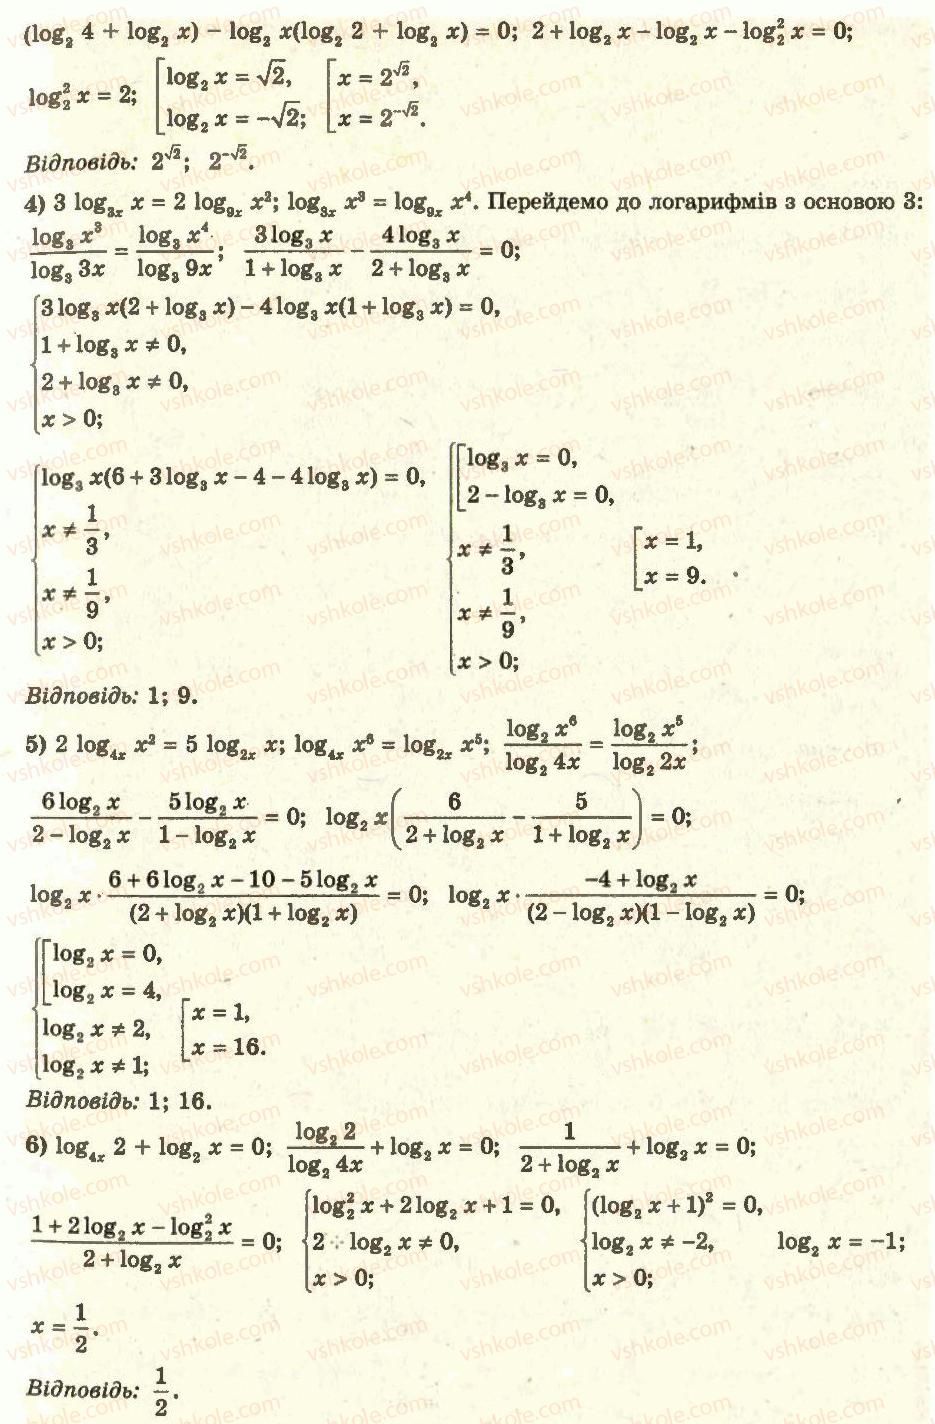 (log₂ 4 + log₂ x) − log₂ x(log₂ 2 + log₂ x) = 0; 2 + log₂ x − log₂ x − log₂² x = 0;
log₂² x = 2; [log₂ x = √2, log₂ x = −√2; [x = 2^√2, x = 2^−√2.
Відповідь: 2^√2; 2^−√2.
4) 3 log₃ₓ x = 2 log₉ₓ x²; log₃ₓ x³ = log₉ₓ x⁴. Перейдемо до логарифмів з основою 3:
log₃ x³ / log₃ 3x = log₃ x⁴ / log₃ 9x; 3 log₃ x / (1 + log₃ x) − 4 log₃ x / (2 + log₃ x) = 0;
{3 log₃ x(2 + log₃ x) − 4 log₃ x(1 + log₃ x) = 0,
1 + log₃ x ≠ 0,
2 + log₃ x ≠ 0,
x > 0;
{log₃ x(6 + 3 log₃ x − 4 − 4 log₃ x) = 0,
x ≠ 1/3,
x ≠ 1/9,
x > 0;
{[log₃ x = 0,
2 − log₃ x = 0,
x ≠ 1/3,
x ≠ 1/9,
x > 0;
[x = 1,
x = 9.
Відповідь: 1; 9.
5) 2 log₄ₓ x² = 5 log₂ₓ x; log₄ₓ x⁶ = log₂ₓ x⁵; log₂ x⁶ / log₂ 4x = log₂ x⁵ / log₂ 2x;
6 log₂ x / (2 − log₂ x) − 5 log₂ x / (1 − log₂ x) = 0; log₂ x(6 / (2 + log₂ x) − 5 / (1 + log₂ x)) = 0;
log₂ x · (6 + 6 log₂ x − 10 − 5 log₂ x) / ((2 + log₂ x)(1 + log₂ x)) = 0; log₂ x · (−4 + log₂ x) / ((2 − log₂ x)(1 − log₂ x)) = 0;
{[log₂ x = 0,
log₂ x = 4,
log₂ x ≠ 2,
log₂ x ≠ 1;
[x = 1,
x = 16.
Відповідь: 1; 16.
6) log₄ₓ 2 + log₂ x = 0; log₂ 2 / log₂ 4x + log₂ x = 0; 1 / (2 + log₂ x) + log₂ x = 0;
(1 + 2 log₂ x − log₂² x) / (2 + log₂ x) = 0; {log₂² x + 2 log₂ x + 1 = 0, 2 + log₂ x ≠ 0, x > 0; {(log₂ x + 1)² = 0, log₂ x ≠ −2, x > 0; log₂ x = −1;
x = 1/2.
Відповідь: 1/2.
vshkole.com